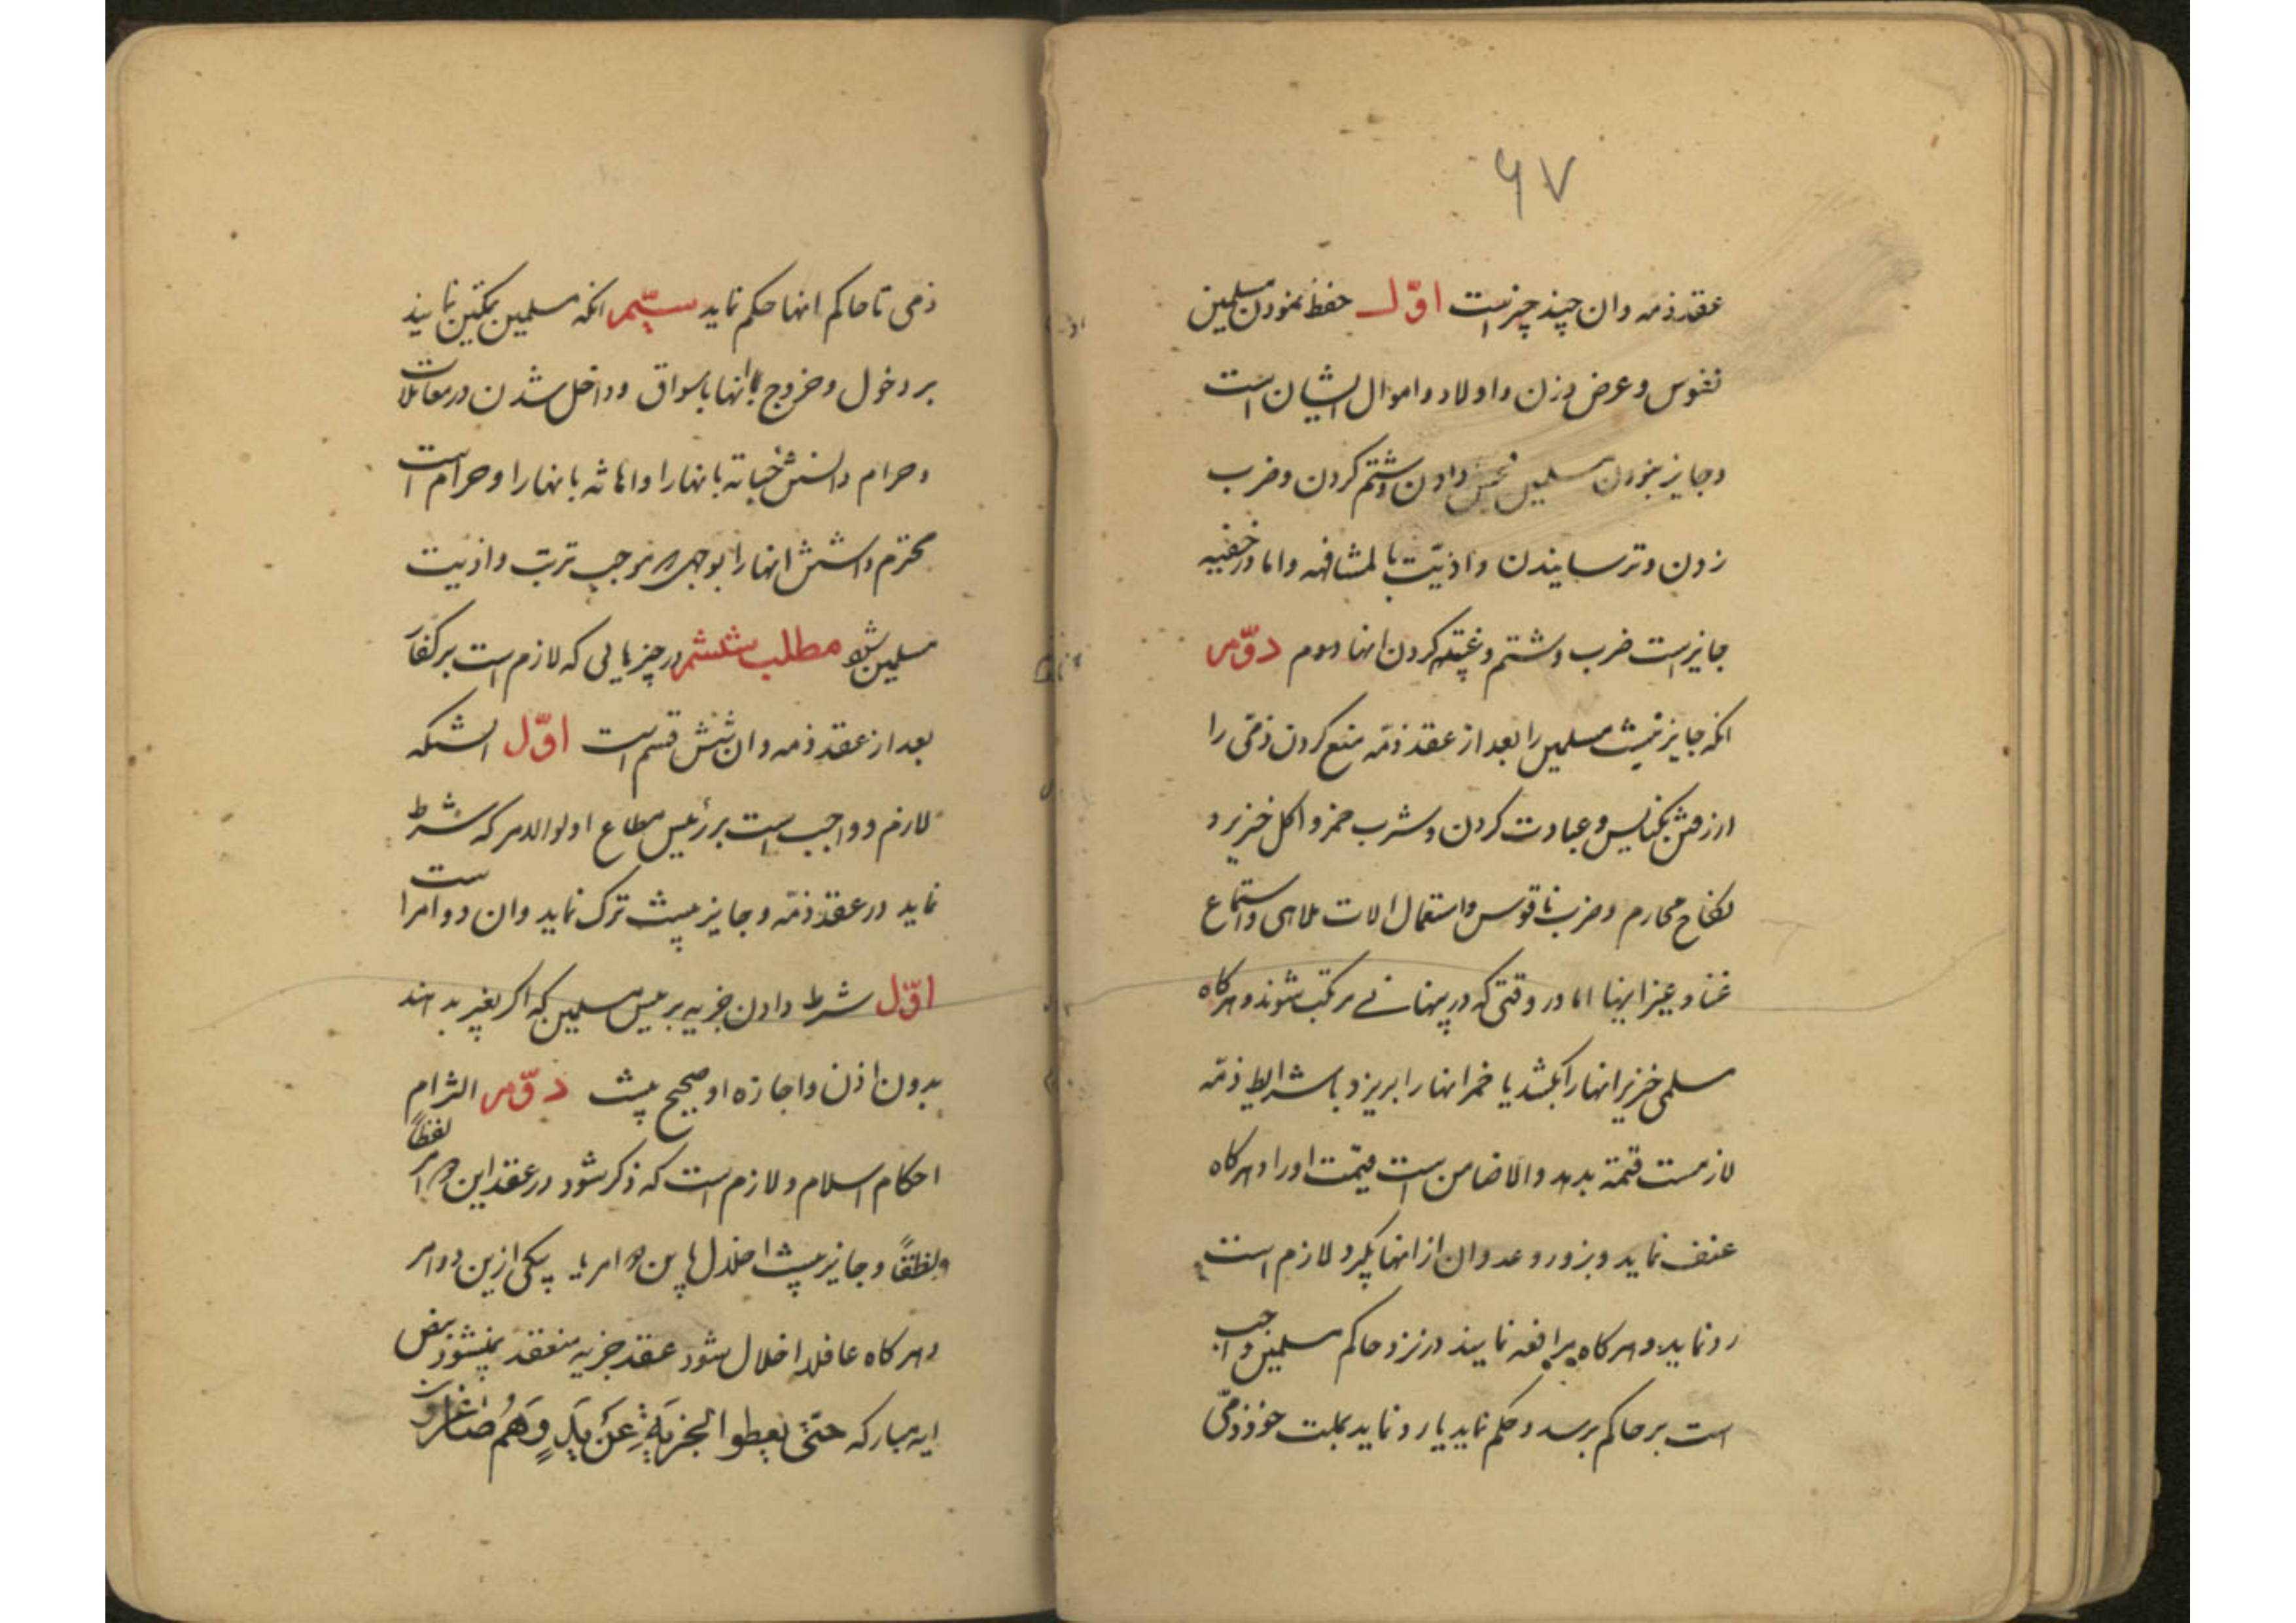 ۶۷
عقد ذمه و ان چند چیز است اوّل حفظ نمودن مسلمین
نفوس و عرض و زن و اولاد و اموال ایشان است
و جایز نبودن مسلمین فحش دادن و شتم کردن و ضرب
زدن و ترسایندن و اذیّت بالمشافهه و اما در خفیه
جایز است ضرب و شتم و غیبة کردن انها دوم دوّمر
انکه جایز نیست مسلمین را بعد از عقد ذمّه منع کردن ذمّی را
از رفتن بکنایس و عبادت کردن و شرب خمر و اکل خنزیر و
نکاح محارم و ضرب ناقوس و استعمال الات ملاهی و استماع
غنا و غیر اینها اما در وقتی که در پنهانی مرتکب شوند و هرکاه
مسلمی خنزیر انها را بکشد یا خمر انها را بریزد با شرایط ذمّه
لازمست قیمة بدهد و الا ضامن است قیمت او را و هرکاه
عنف نماید و بزور و عدوان از انها بگیرد لازم است
رد نماید و هرکاه مرافعه نمایند در نزد حاکم مسلمین واجب
است بر حاکم برسد و حکم نماید یا رد نماید بملت خود ذمّی
ذمی تا حاکم انها حکم نماید سیّمر انکه مسلمین تمکین نمایند
بر دخول و خروج انها باسواق و داخل شدن در معاملات
و حرام دانستن خیانة بانها را و اهانة بانها را و حرام است
محترم داشتن انها را بوجهی که موجب تربت و اذیت
مسلمین شود مطلب ششمر در چیزهایی که لازم است بر کفار
بعد از عقد ذمه و ان شش قسم است اوّل انستکه
لازم و واجب است بر رئیس مطاع اولوالامر که شرط
نماید در عقد ذمّه و جایز نیست ترک نماید و ان دو امر است
اوّل شرط دادن جزیه بر رئیس مسلمین که اگر بغیر بدهند
بدون اذن و اجازه او صحیح نیست دوّمر التزام
احکام اسلام و لازم است که ذکر شود در عقد این دو امر لفظاً
و نطقاً و جایز نیست اخلال باین دو امر یا بیکی ازین دو امر
و هر کاه اخلال شود عقد جزیه منعقد نمیشود بنص
ایه مبارکه حتّی یعطوا الجزیَةَ عَن یَدٍ وَهُم صٰاغرون